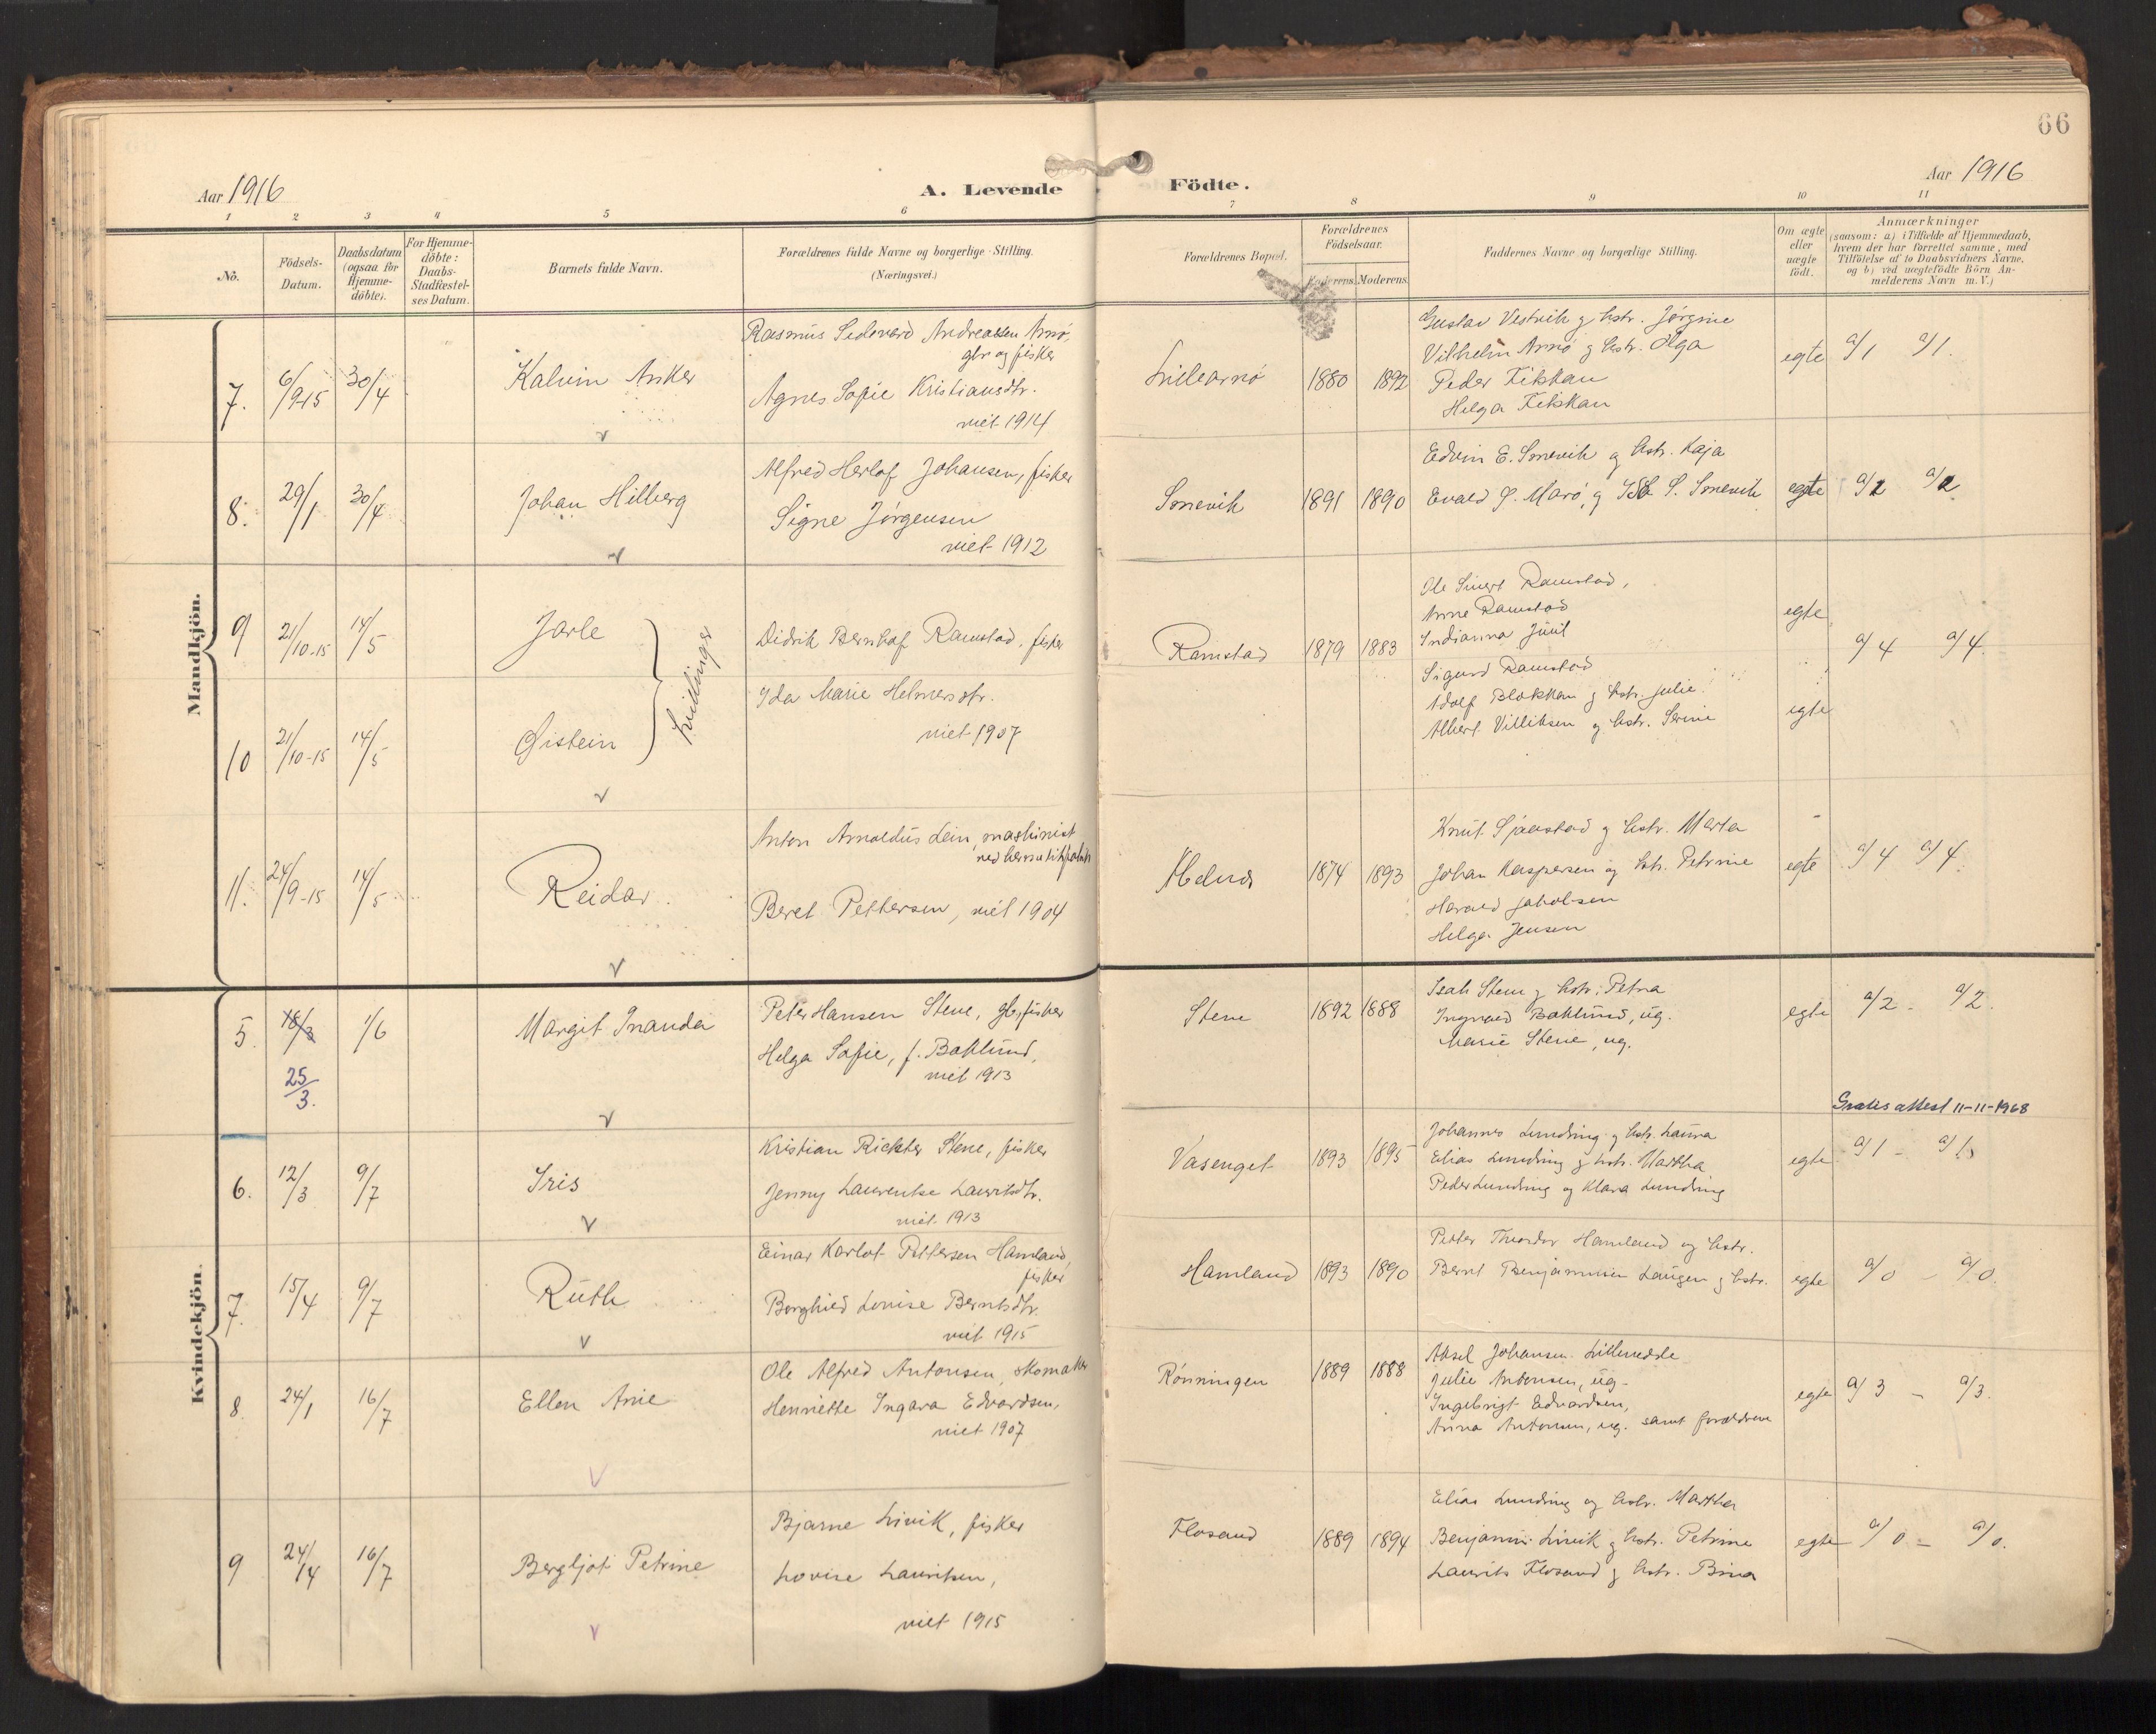 66
Aar 1916
A. Levende Födte.
Aar 1916
1 2 3 4 5 6 7 8 9 10 11
No.
Födsels-
Datum.
Daabsdatum
(ogsaa for
Hjemme-
döbte).
For Hjemme-
döbte:
Daabs-
Stadfæstel-
ses Datum.
Barnets fulde Navn.
Forældrenes fulde Navne og borgerlige Stilling.
(Næringsvei.)
Forældrenes Bopæl.
Forældrenes
Födselsaar.
Faderens. Moderens.
Faddernes Navne og borgerlige Stilling.
Om ægte
eller
uægte
født.
Anmærkninger
(saasom: a) i Tilfælde af Hjemmedaab,
hvem der har forrettet samme, med
Tilföielse af to Daabsvidners Navne,
og b) ved uægtefödte Börn An-
melderens Navn m. V.)
Mandkjön.
7. 6/9-15 30/4
Kalvin Anker
Rasmus Andreassen Arnø,
gbr og fisker
Agnes Sofie Kristiansdtr.
viet 1914
Lillearnø 1880 1892
Gustav Vestvik g hstr. Jørgine
Vilhelm Arnø g hstr. Olga
Peder
Helga
egte a/1 a/1.
8. 29/1 30/4
Johan Hilberg
Alfred Herlof Johansen, fisker
Signe Jørgensen
viet 1912
Smevik 1891 1890
Edvin E. Smevik g hstr. Kaja
Evald P. Marø, g S. Smevik
egte a/2 a/2
9 21/10-15 14/5
Jarle
tvillinger
Didrik Bernhof Ramstad, fisker
Ramstad 1879 1883
Ole Sivert Ramstad,
Anne Ramstad
Indianna Juul
egte
a/4 a/4.
10 21/10-15 14/5
Øistein
Ida Marie Helmersdtr.
viet 1907
Sigurd Ramstad
Adolf Blokkan g hstr. Julie
Albert Villiksen g hstr. Serine
egte
11. 24/9-15 14/5
Reidar
Anton Arnoldus Lein, maskinist
ved hermetikfabrik
Beret Pettersen, viet 1904
1874 1893
Knut Sjaastad g hstr. Marta
Johan Kaspersen og hstr. Petrine
Harald Jakobsen
Helga Jensen
egte a/4 a/4.
Kvindekjön.
5. 18/3 1/6
25/3.
Margit Inanda
Peter Hansen Stene, gb, fisker
Helga Sofie, f. Baklund,
viet 1913
Stene 1892 1888
Isak Stene g hstr. Petra
Ingvald Baklund, ug.
Marie Stene, ug.
egte a/2 - a/2.
Gratis attest 11-11-1968
6. 12/3 9/7
Iris
Kristian Richter Stene, fisker
Jenny Laurentse Lauritsdtr.
viet 1913
Vasenget 1893 1895
Johannes Lundring g hstr. Laura
Elias Lundring g hstr. Martha
Peder Lundring og Klara Lundring
egte a/1 - a/1.
7. 15/4 9/7
Ruth
Einar Karlot Pettersen Hamland,
fisker
Borghild Lovise Berntsdtr.
viet 1915
Hamland 1893 1890
Petter Theodor Hamland og hstr.
Bernt Benjaminsen Laugen g hstr.
egte a/0 - a/0.
8. 24/1 16/7
Ellen Anie
Ole Alfred Antonsen, skomaker
Henriette Ingara Edvardsen,
viet 1907
Rønningen 1889 1888
Aksel Johansen
Julie Antonsen, ug-
Ingebrigt Edvardsen,
Anna Antonsen, ug. samt forældrene
egte a/3 - a/3.
9 24/4 16/7
Bergljot Petrine
Bjarne Livik, fisker
Lovise Lauritsen,
viet 1915
Flosand 1889 1894
Elias Lundring og hstr. Martha
Benjamin Livik g hstr. Petrine
Laurits Flosand g hstr. Bina
egte a/0 - a/0.